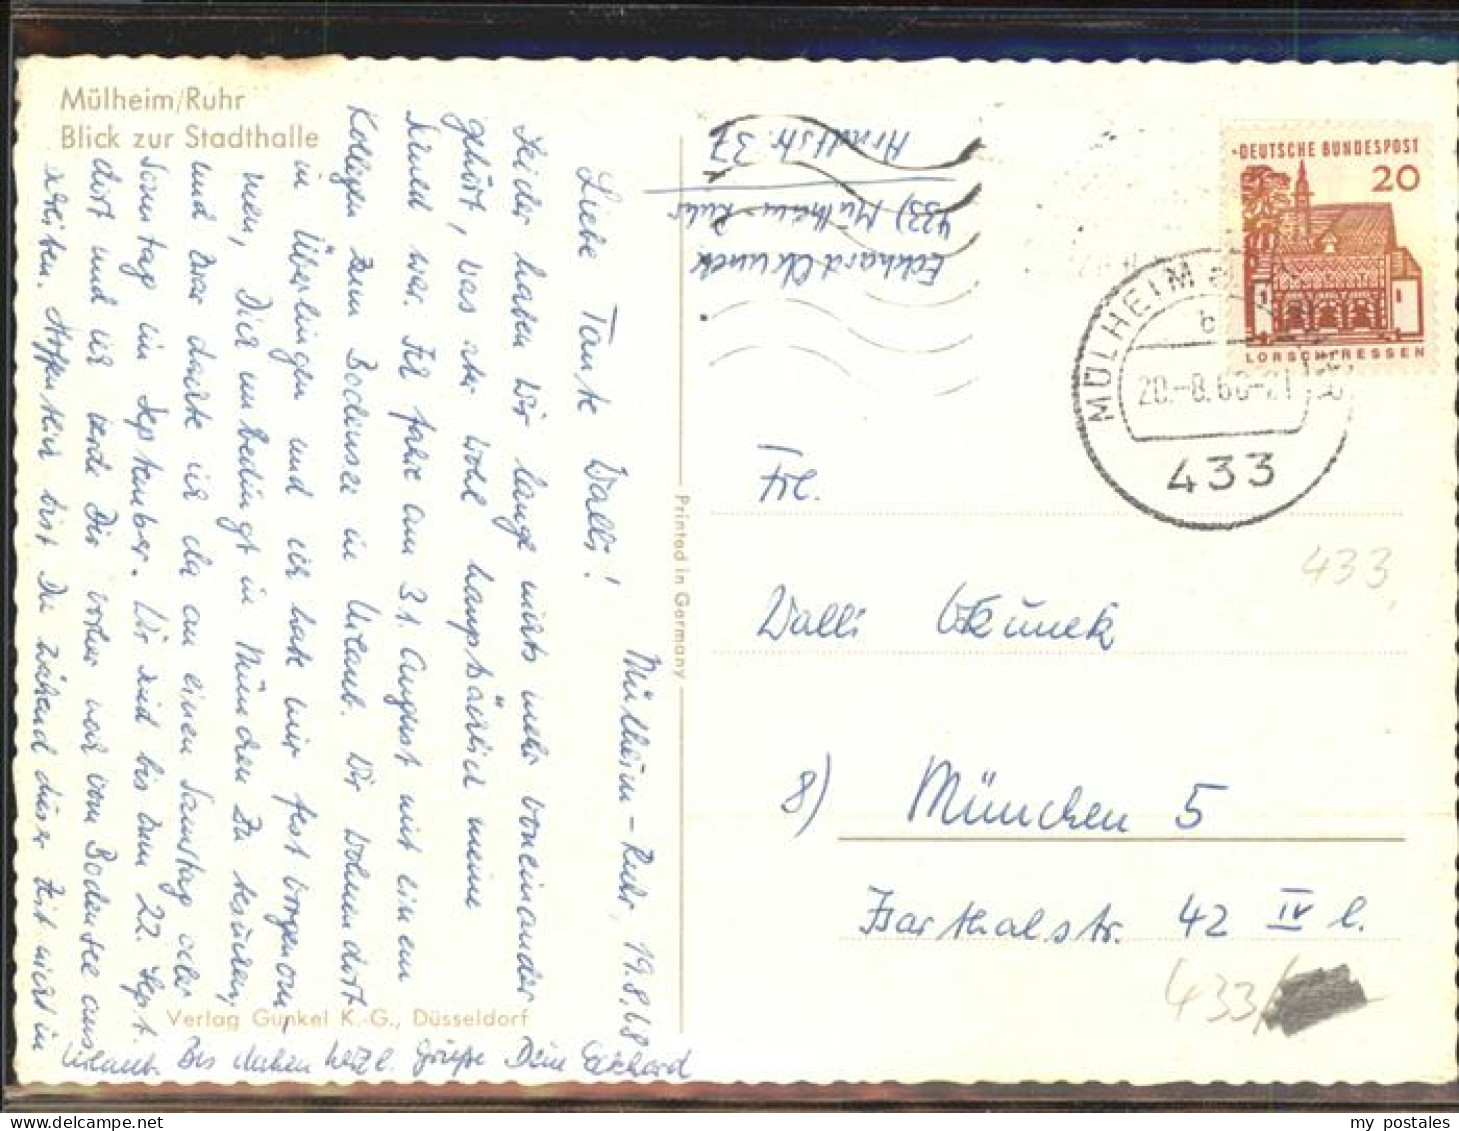 Mülheim/Ruhr
Blick zur Stadthalle
Mülheim-Ruhr, 19.8.68
Liebe Tante Walli!
Leider haben wir lange nichts mehr voneinander
gehört, was wohl hauptsächlich meine
Schuld war. Ich fahre am 31. August mit einem
Kollegen zum Bodensee in Urlaub. Wir wohnen dort
in Überlingen und ich habe mir fest vorgenom-
men, Dich unbedingt in München zu besuchen,
und zwar dachte ich da an einen Samstag oder
Sonntag im September. Wir sind bis zum 22. Sept.
dort und ich werde Dir vorher noch vom Bodensee aus
schreiben. Hoffentlich bist Du während dieser Zeit nicht in
Urlaub. Bis dahin herzl. Grüße Dein Eckhard
Verlag Gunkel K.-G., Düsseldorf
Printed in Germany
Eckhard
433) Mülheim Ruhr
Arndtstr. 37
DEUTSCHE BUNDESPOST
20
LORSCH/HESSEN
MÜLHEIM
b
433
Frl.
Walli
8) München 5
Isarthalstr. 42 IV l.
433
433/
my postales